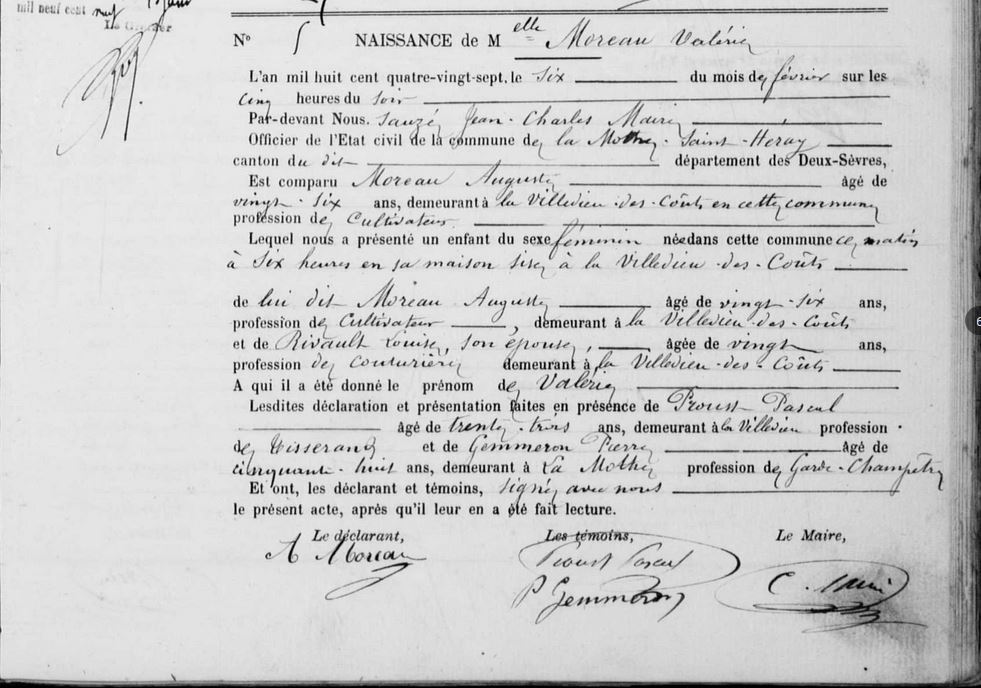 mil neuf cent neuf
Le Greffier
N° 5 NAISSANCE de Melle Moreau Valérie
L'an mil huit cent quatre-vingt-sept, le six du mois de février sur les
cinq heures du soir
Par-devant Nous, Sauzé Jean-Charles Maire
Officier de l'Etat civil de la commune de la Mothe-Saint-Héray
canton du dit département des Deux-Sèvres,
Est comparu Moreau Auguste âgé de
vingt-six ans, demeurant à la Villedieu-des-Coûts en cette commune
profession de Cultivateur
Lequel nous a présenté un enfant du sexe féminin née dans cette commune ce matin
à six heures en sa maison sise à la Villedieu-des-Coûts
de lui dit Moreau Auguste âgé de vingt-six ans,
profession de Cultivateur, demeurant à la Villedieu-des-Coûts
et de Rivault Louise, son épouse, âgée de vingt ans,
profession de couturière demeurant à la Villedieu-des-Coûts
A qui il a été donné le prénom de Valérie
Lesdites déclaration et présentation faites en présence de Proust Pascal
âgé de trente-trois ans, demeurant à la Villedieu profession
de Tisserand et de Gemmeron Pierre âgé de
cinquante-huit ans, demeurant à La Mothe profession de Garde-Champêtre
Et ont, les déclarant et témoins, signé avec nous
le présent acte, après qu'il leur en a été fait lecture.
Le déclarant, Les témoins, Le Maire,
A Moreau Proust Pascal
P Gemmeron C. Sauzé